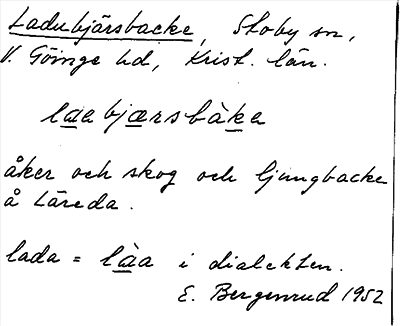 Ladubjärsbacke, Stoby sn,
V. Göinge hd, Krist. län.
laabjærsbàka
åker och skog och ljungbacke
å Läreda.
lada = làa i dialekten.
E. Bergenrud 1952